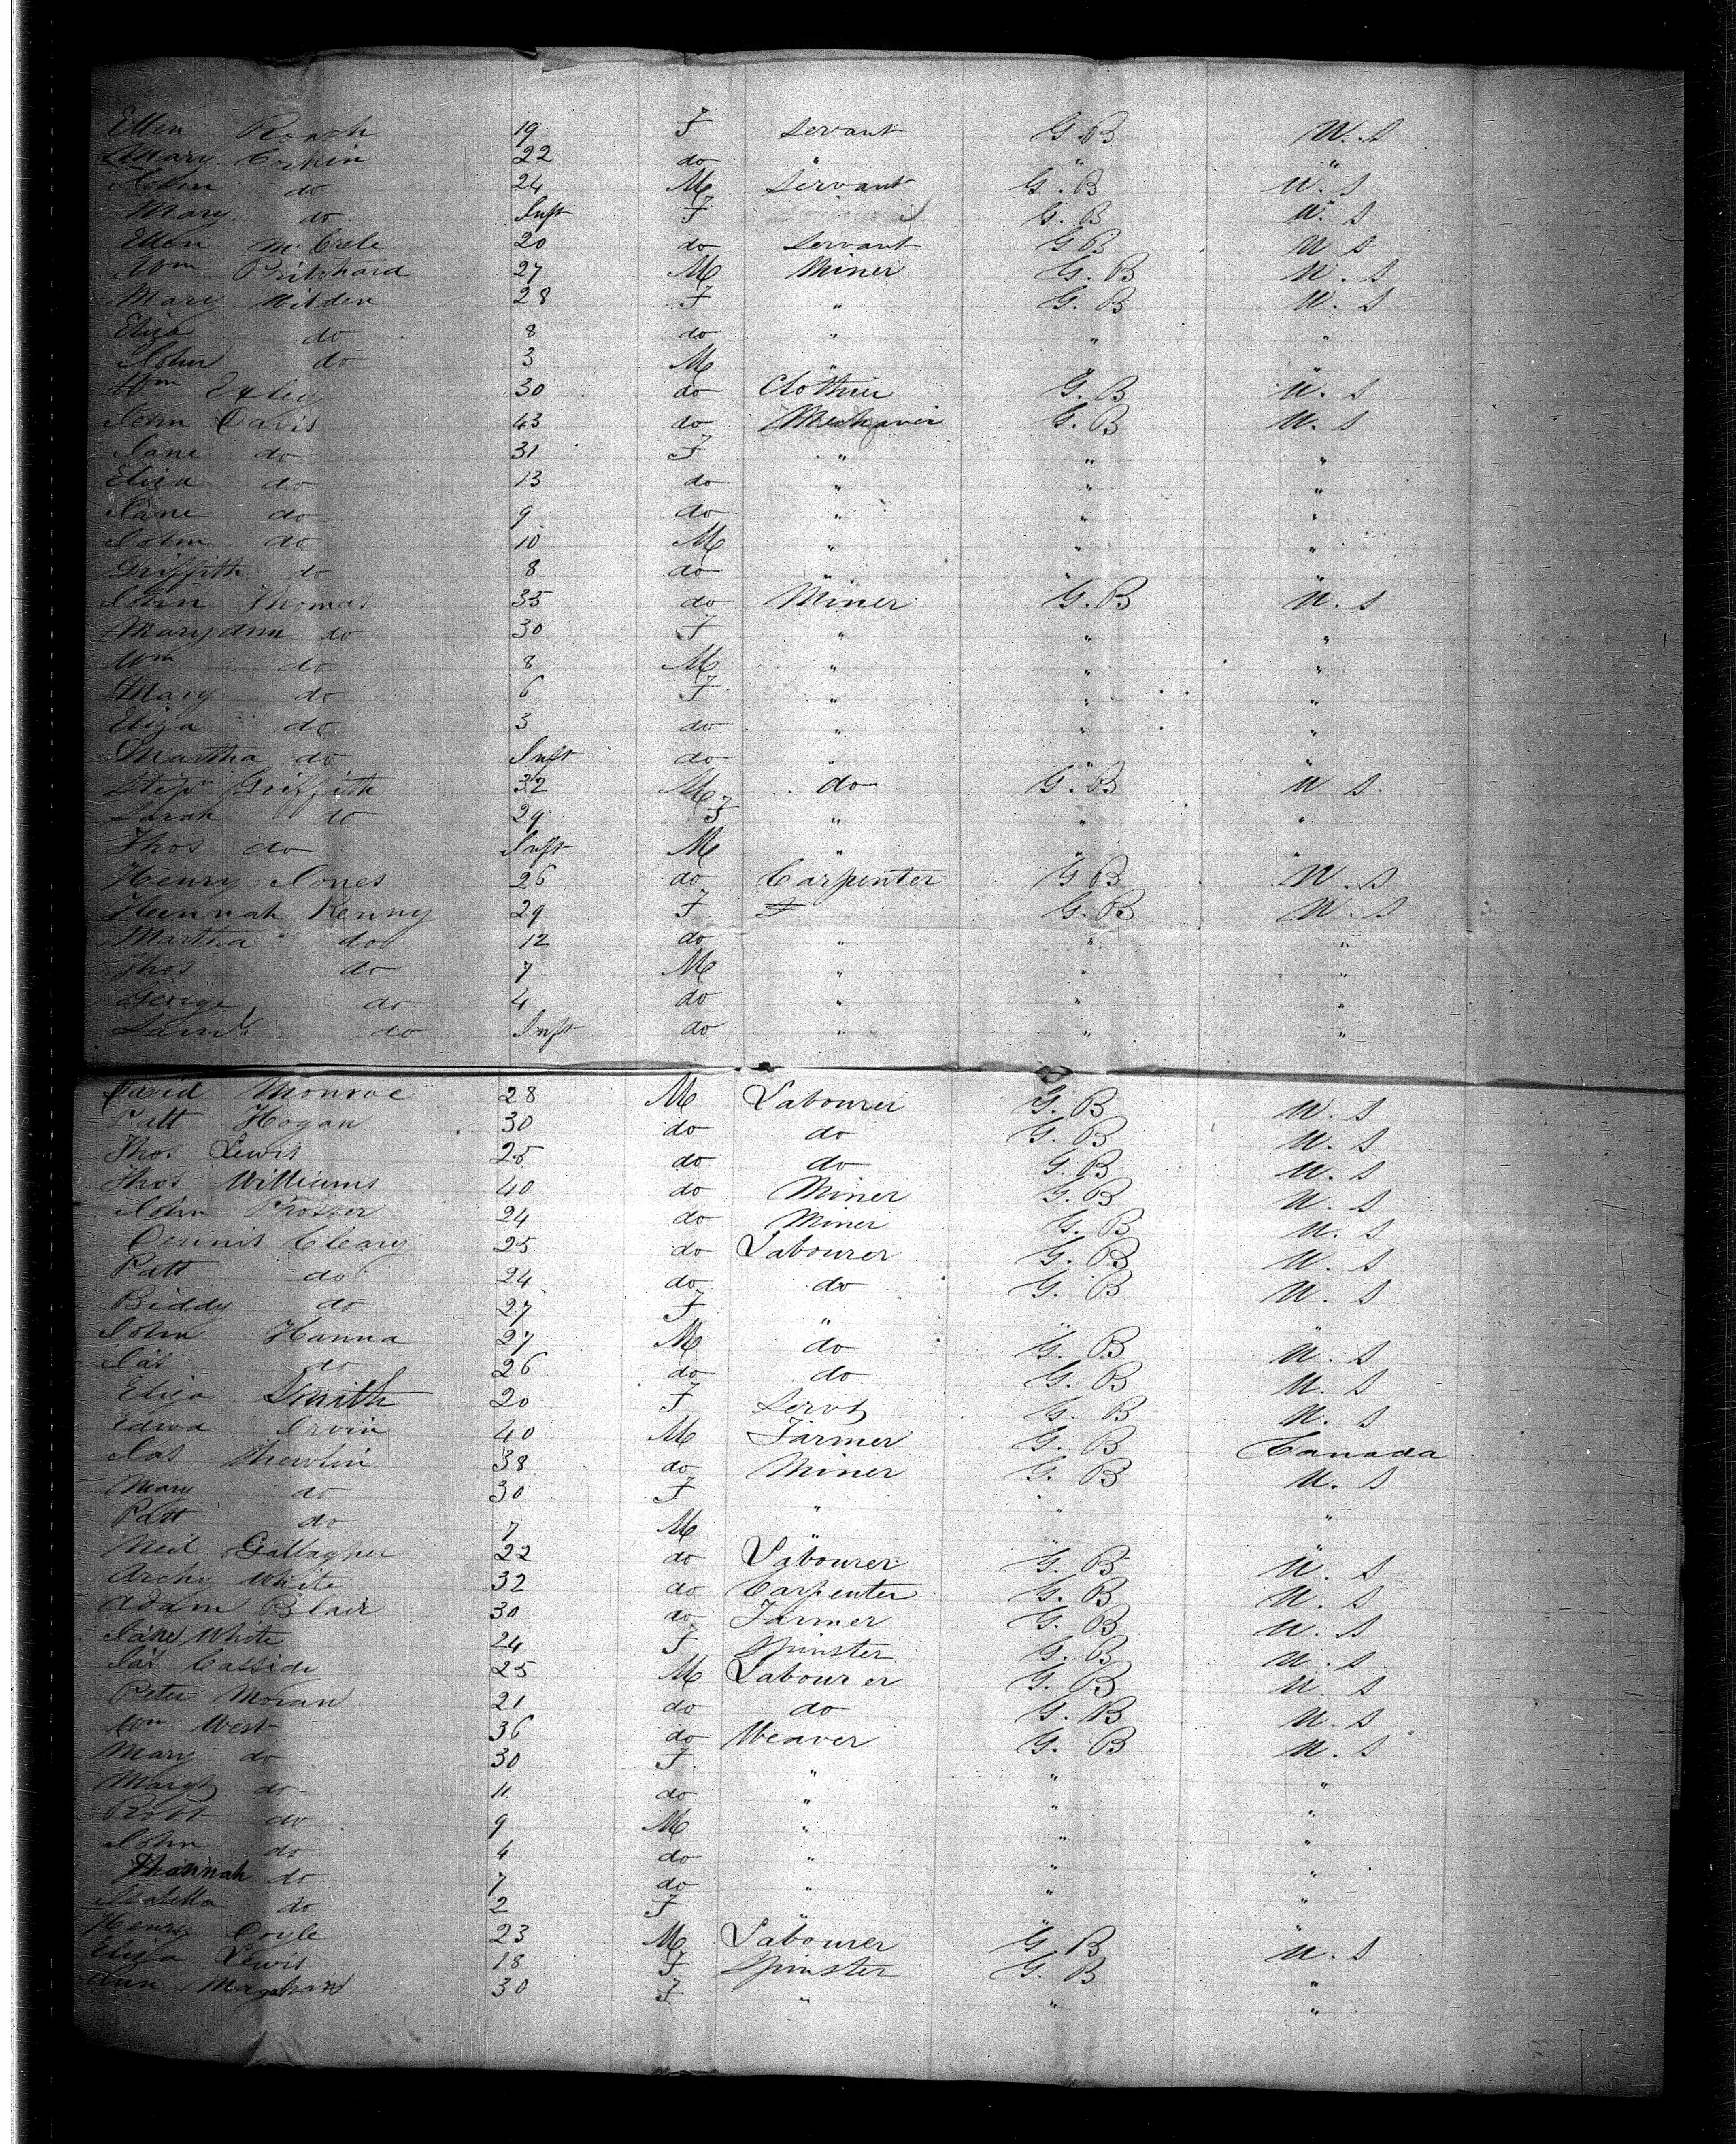 Ellen Roach 19 F Servant G.B U.S
Mary Corkin 22 do " " "
John do 24 M Servant G.B U.S
Mary do Inft F G.B U.S
Ellen Mc Crele 20 do Servant G B U S
Wm Pritchard 27 M Miner G.B U.S
Mary Wilden 28 F " G.B U.S
Eliza do 8 do " " "
John do 3 M " " "
Wm Exley 30 do Clothier G.B U.S
John Davis 43 do Mechanic G.B U.S
Jane do 31 F " " "
Eliza do 13 do " " "
Jane do 9 do " " "
John do 10 M " " "
Griffith do 8 do " " "
John Thomas 35 do Miner G.B U.S
Mary Ann do 30 F " " "
Wm do 8 M " " "
Mary do 6 F " " "
Eliza do 3 do " " "
Martha do Inft do " " "
Stepn Griffith 32 M do G.B U S
Sarah do 29 F " " "
Thos do Inft M " " "
Henry Jones 26 do Carpenter G B U.S
Hennah Kenny 29 F F G.B U.S
Martha do 12 do " " "
Thos do 7 M " " "
George do 4 do " " "
Saml do Inft do " " "
David Monroe 28 M Labourer G.B U.S
Patt Hogan 30 do do G.B U.S
Thos Lewis 25 do do G.B U.S
Thos Williams 40 do Miner G.B U.S
John Prosser 24 do Miner G.B U.S
Dennis Cleary 25 do Labourer G.B U.S
Patt do 24 do do G.B U.S
Biddy do 27 F " " "
John Hanna 27 M do G.B U.S
Jas do 26 do do G.B U.S
Eliza Smith 20 F Servt G.B U.S
Edwd Irvin 40 M Farmer G.B Canada
Jas 38 do Miner G.B U.S
Mary do 30 F " " "
Patt do 7 M " " "
Neil Gallagher 22 do Labourer G.B U.S
Archy White 32 do Carpenter G.B U.S
Adam Blair 30 do Farmer G.B U.S
Jane White 24 F Spinster G.B U.S
Jas Casside 25 M Labourer G.B U.S
Peter Moran 21 do do G.B U.S
Wm West 36 do Weaver G.B U.S
Mary do 30 F " " "
Margt do 11 do " " "
Robt do 9 M " " "
John do 4 do " " "
Hannah do 7 do " " "
Isabella do 2 F " " "
Henry Doyle 23 M Labourer G B U.S
Eliza Lewis 18 F Spinster G.B "
Ann 30 F " " "